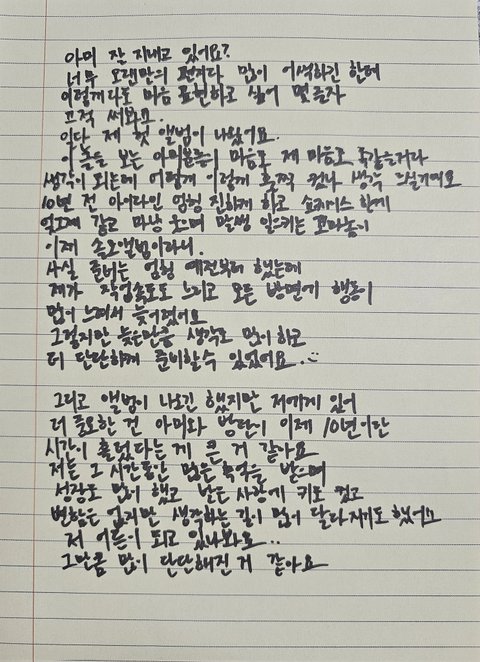 아미 잘 지내고 있어요?
너무 오랜만의 편지다 많이 어색하긴 한데
이렇게라도 마음 표현하고 싶어 몇글자
끄적 써봐요.
일단 제 첫 앨범이 나왔어요.
이 글을 보는 아미분들의 마음도 제 마음도 똑같을거라
생각이 되는데 어떻게 이렇게 훌쩍 컸나 생각 드실거에요
10년 전 아이라인 엄청 진하게 하고 스모키 한게
엊그제 같고 마냥 웃으며 말썽 일으키는 꼬마놈이
이제 솔로앨범이라니.
사실 준비는 엄청 예전부터 했는데
제가 작업속도도 느리고 모든 방면에 행동이
많이 느려서 늦어졌어요
그렇지만 늦은만큼 생각도 많이 하고
더 단단하게 준비할수 있었어요.
그리고 앨범이 나오긴 했지만 저에게 있어
더 중요한 건 아미와 방탄이 이제 10년이란
시간이 흘렀다는 게 큰 거 같아요
저는 그 시간동안 많은 축복을 받으며
성장도 많이 했고 받은 사랑에 키도 컸고
변함은 없지만 생각하는 길이 많이 달라지기도 했어요
저 어른이 되고 있나봐요..
그만큼 많이 단단해진 거 같아요